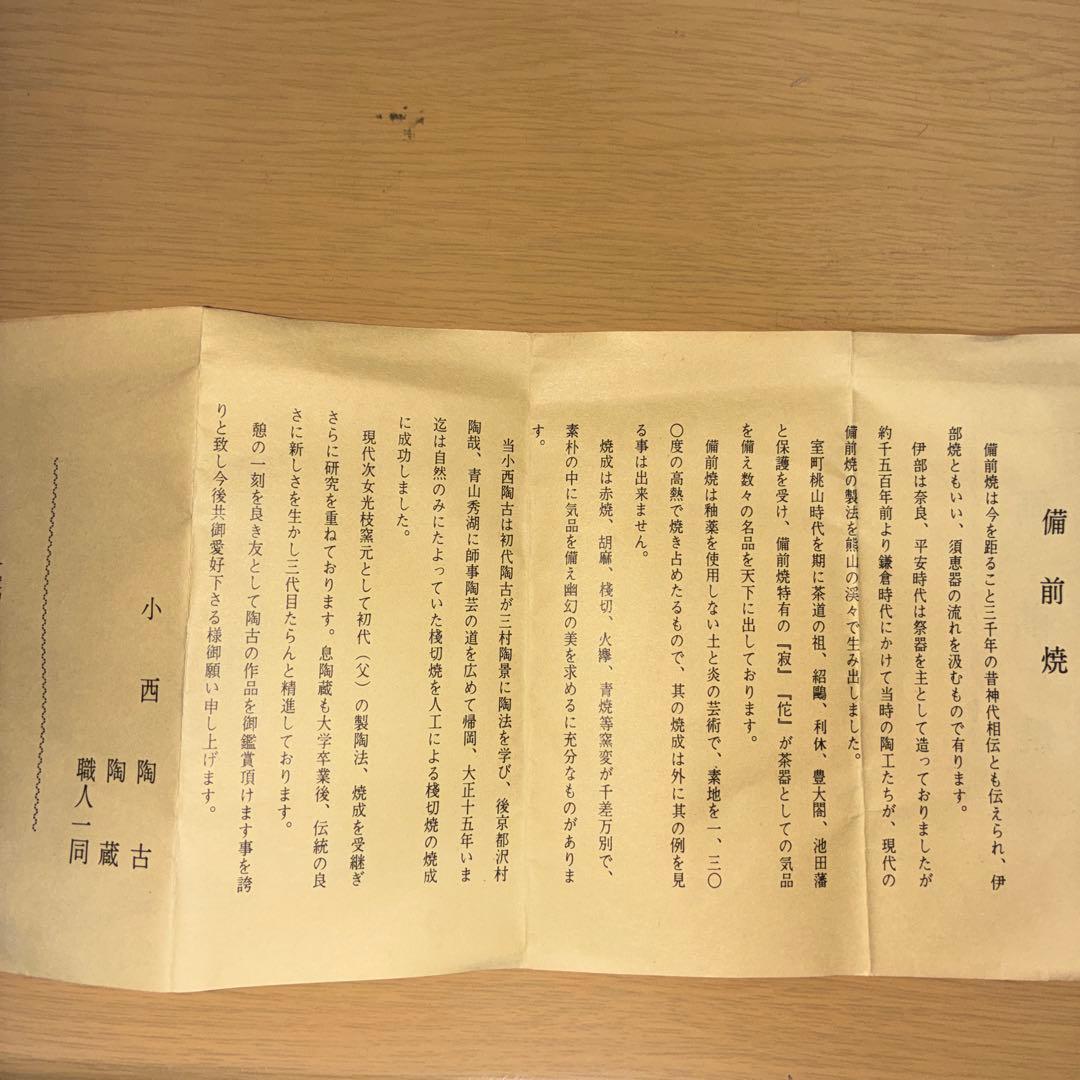 備前焼
備前焼は今を距ること三千年の昔神代相伝とも伝えられ、伊
部焼ともいい、須恵器の流れを汲むもので有ります。
伊部は奈良、平安時代は祭器を主として造っておりましたが
約千五百年前より鎌倉時代にかけて当時の陶工たちが、現代の
備前焼の製法を熊山の渓々で生み出しました。
室町桃山時代を期に茶道の祖、紹鷗、利休、豊大閤、池田藩
と保護を受け、備前焼特有の『寂』『佗』が茶器としての気品
を備え数々の名品を天下に出しております。
備前焼は釉薬を使用しない土と炎の芸術で、素地を一、三〇
〇度の高熱で焼き占めたるもので、其の焼成は外に其の例を見
る事は出来ません。
焼成は赤焼、胡麻、棧切、火襷、青焼等窯変が千差万別で、
素朴の中に気品を備え幽幻の美を求めるに充分なものがありま
す。
当小西陶古は初代陶古が三村陶景に陶法を学び、後京都沢村
陶哉、青山秀湖に師事陶芸の道を広めて帰岡、大正十五年いま
迄は自然のみにたよっていた棧切焼を人工による棧切焼の焼成
に成功しました。
現代次女光枝窯元として初代（父）の製陶法、焼成を受継ぎ
さらに研究を重ねております。息陶蔵も大学卒業後、伝統の良
さに新しさを生かし三代目たらんと精進しております。
憩の一刻を良き友として陶古の作品を御鑑賞頂けます事を誇
りと致し今後共御愛好下さる様御願い申し上げます。
小西陶古
陶蔵
職人一同